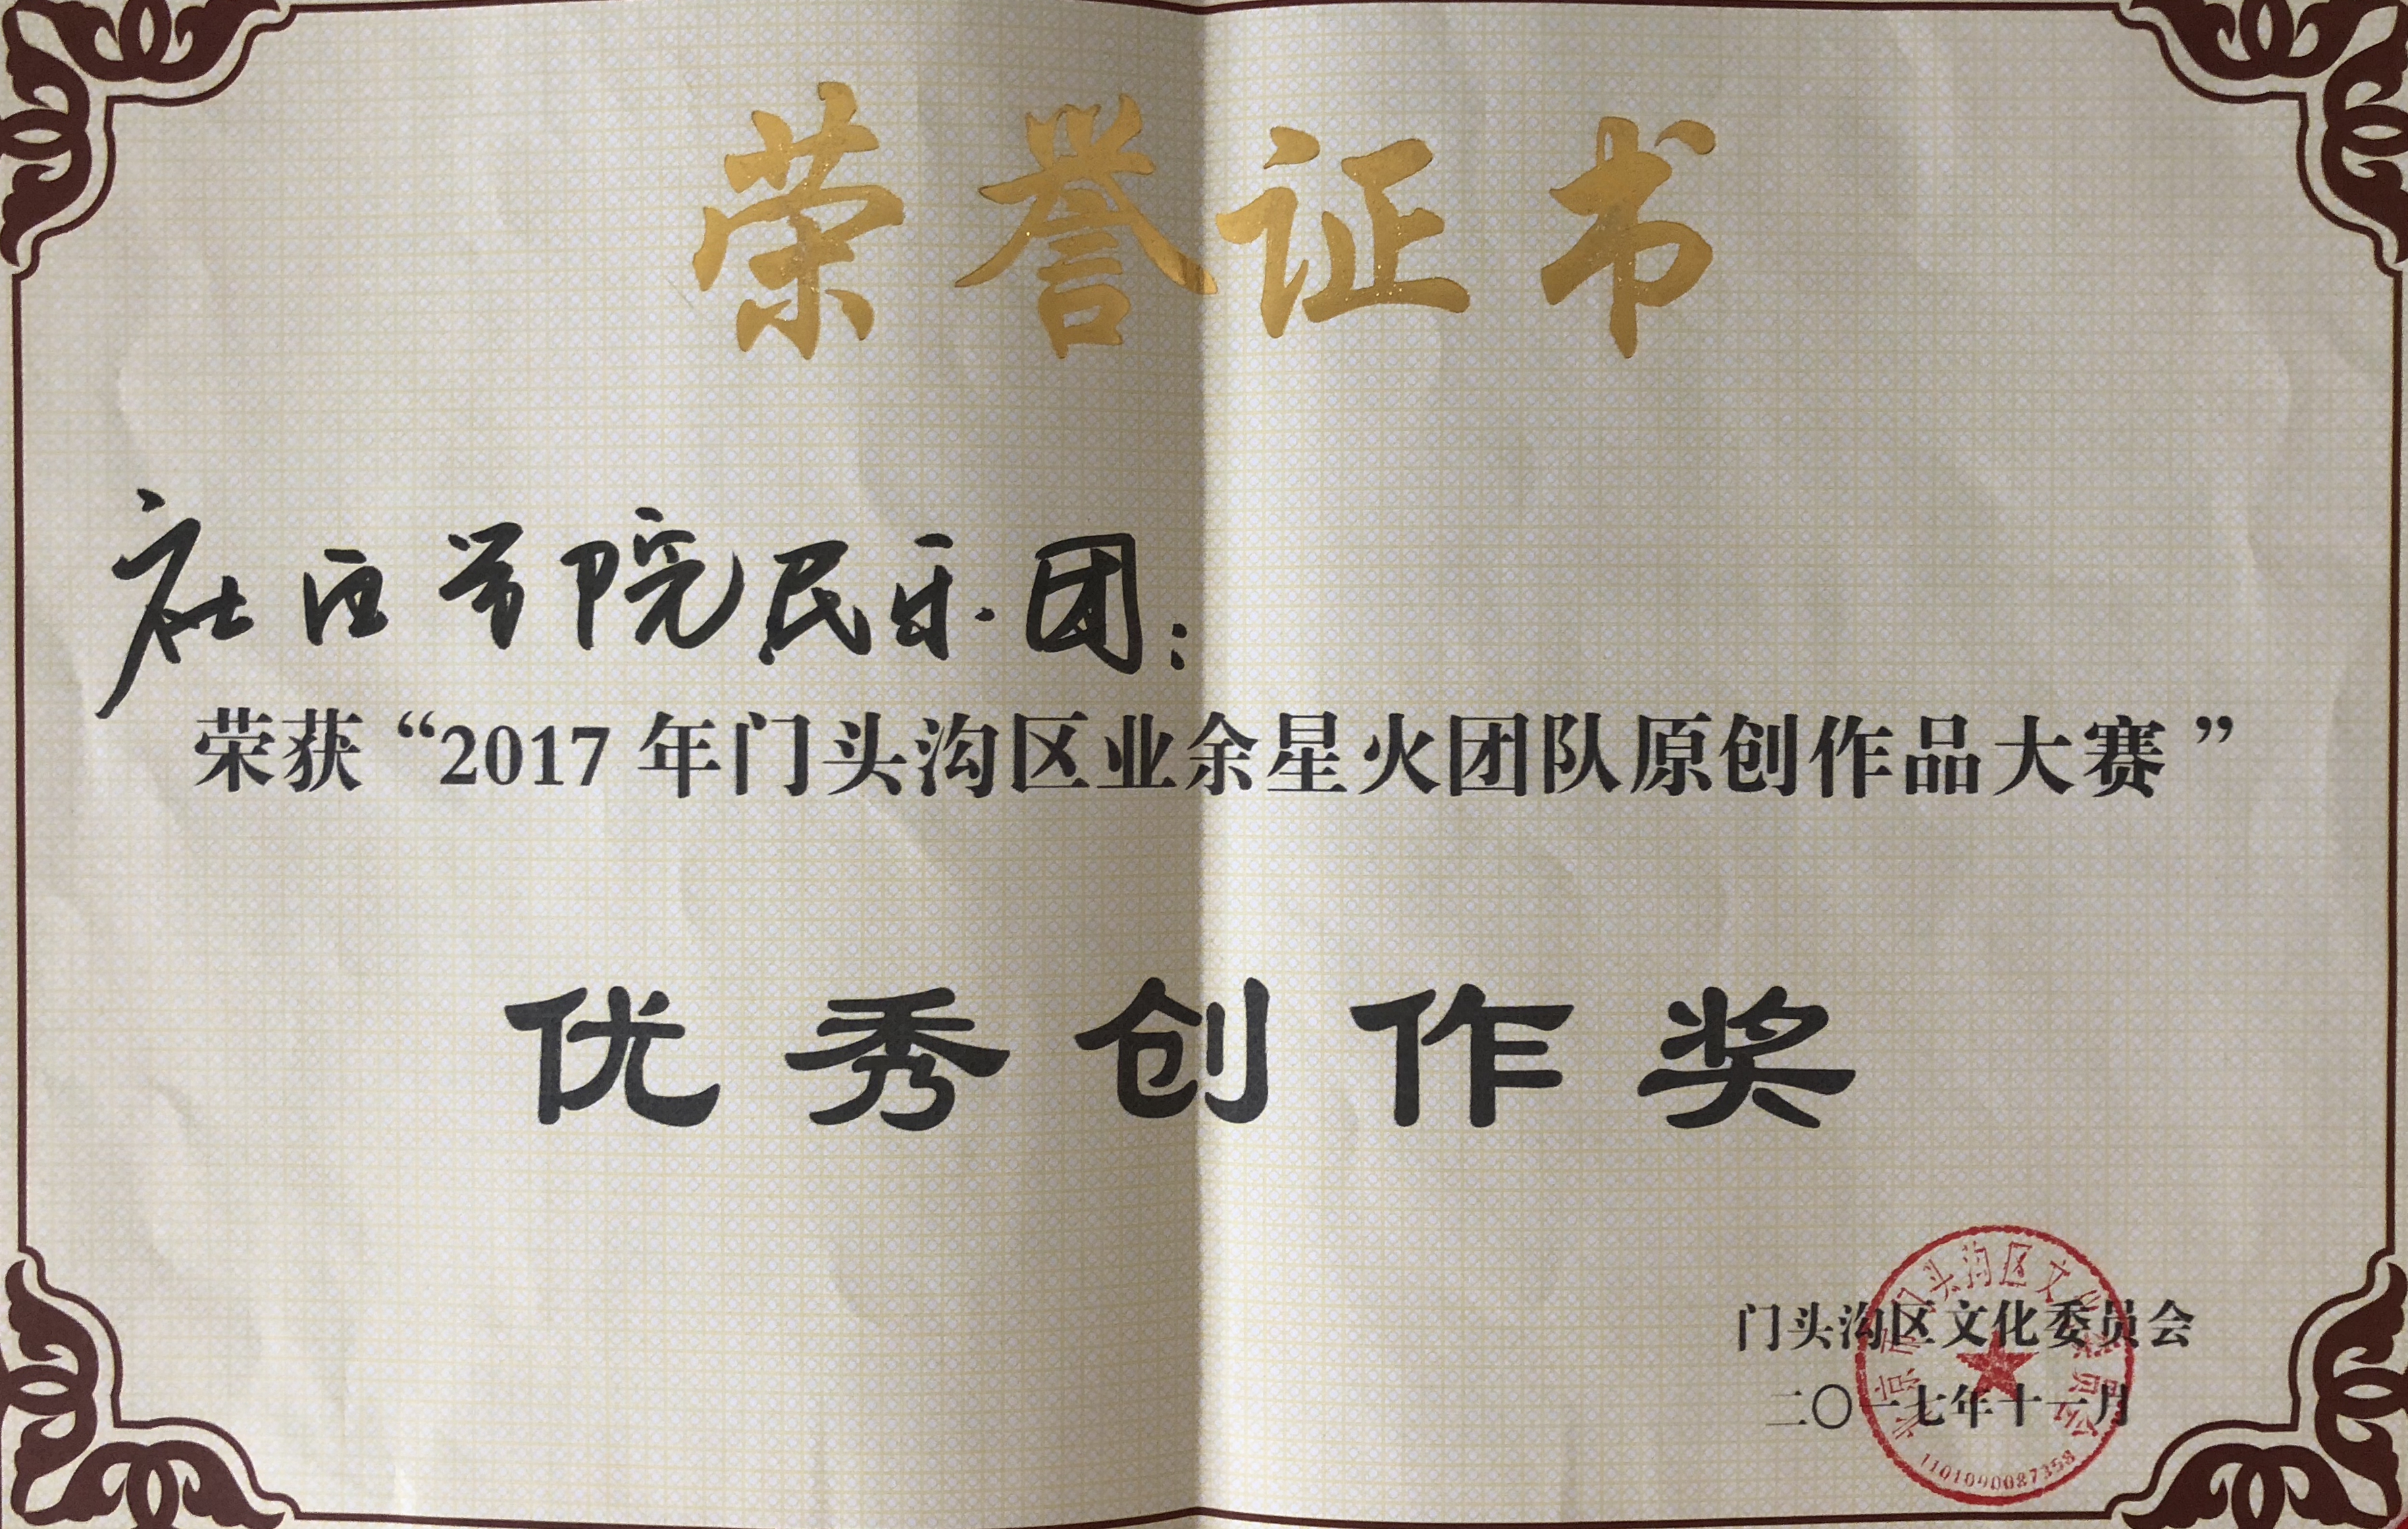 荣誉证书
社区学院民乐团：
荣获“2017年门头沟区业余星火团队原创作品大赛”
优秀创作奖
门头沟区文化委员会
二〇一七年十一月
北京市门头沟区文化委员会
1101090087358